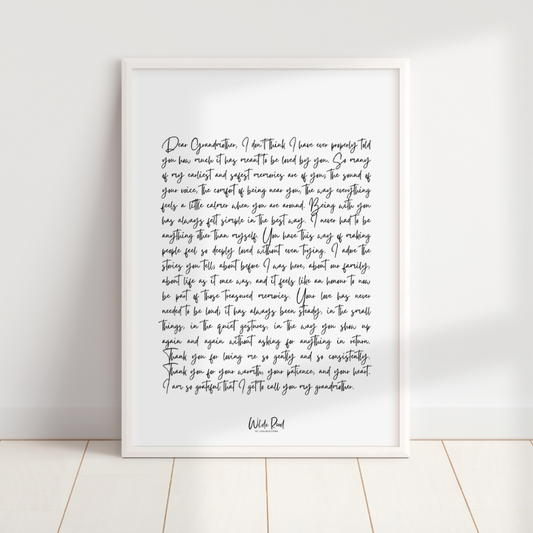 Dear Grandmother, I don't think I have ever properly told
you how much it has meant to be loved by you. So many
of my earliest and safest memories are of you; the sound of
your voice, the comfort of being near you, the way everything
feels a little calmer when you are around. Being with you
has always felt simple in the best way. I never had to be
anything other than myself. You have this way of making
people feel so deeply loved without even trying. I adore the
stories you tell; about before I was here, about our family,
about life as it once was, and it feels like an honour to now
be part of those treasured memories. Your love has never
needed to be loud; it has always been steady, in the small
things, in the quiet gestures, in the way you show up
again and again without asking for anything in return.
Thank you for loving me so gently and so consistently.
Thank you for your warmth, your patience, and your heart.
I am so grateful that I get to call you my grandmother.